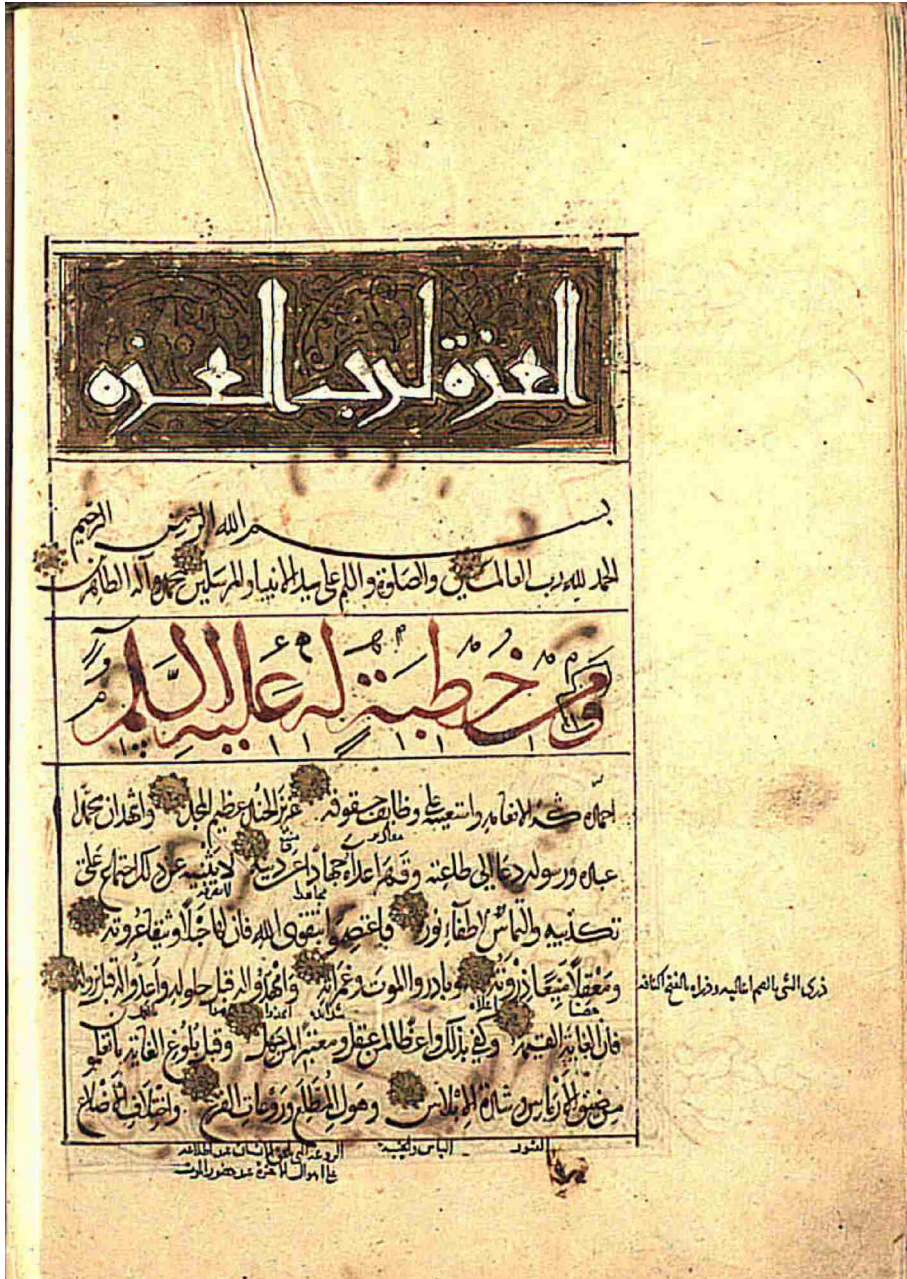 العزة لرب العزه
بسم الله الرحمن الرحيم
الحمد لله رب العالمين والصلوة والسلم على سيد الانبيا والمرسلين محمد وآله الطاهرين
ومن خطبة له عليه السلم
احمده شكرا لانعامه واستعينه على وظايف حقوقه عزيز الجند عظيم المجد واشهد ان محمدا
عبده ورسوله دعا الى طاعته وقهر اعداه جهادا عن دينه لا يثنيه عن ذلك اجتماع على
تكذيبه والتماس لاطفآء نوره فاعتصموا بتقوى الله فان لها حبلا وثيقا عروته
ومعقلا منيعا ذروته وبادروا الموت وغمراته وامهدوا له قبل حلوله واعدوا له قبل نزوله
ذرى الشي بالضم اعاليه وذراه بالفتح
فان الغاية القيمة وكفى بذلك واعظا لمن عقل ومعتبرا لمن جهل وقبل بلوغ الغاية ما تعلمون
من ضيق الارماس وشدة الابلاس وهول المطلع وروعات الفزع واختلاف الاضلاع
القبور